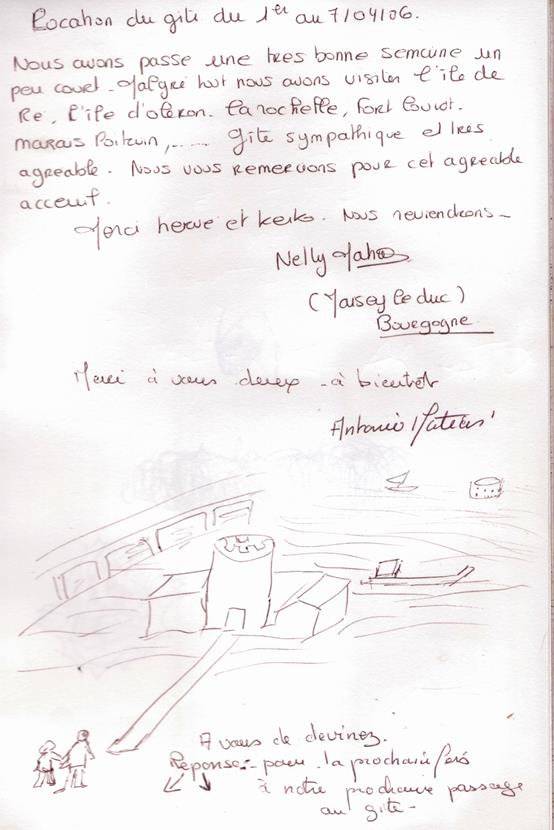 Location du gite du 1er au 7/04/06.
Nous avons passe une tres bonne semaine un
peu court. Malgré tout nous avons visiter l'ile de
Re, l'ile d'oléron. La rochelle, Fort Louvot.
marais Poitevin,...... Gite sympathique et tres
agreable. Nous vous remercions pour cet agreable
acceuil.
Merci herve et keiko. Nous reviendrons_
Nelly
(Marsey le duc)
Bourgogne
Merci à vous deux - à bientot
Antonio
A vous de devinez.
Reponse - pour la prochaine
à notre prochaine passage
au gite -